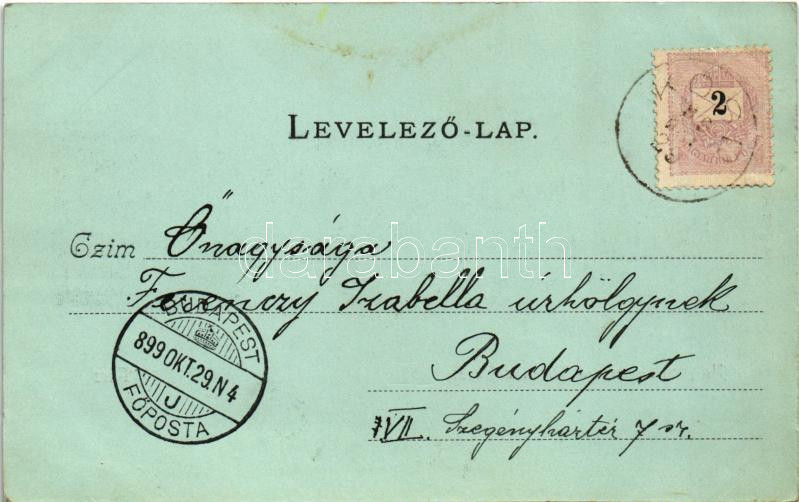 2
LEVELEZŐ-LAP.
Czim Őnagysága
Ferenczy Izabella úrhölgynek
Budapest
VII. Szegényháztér 7 sz.
BUDAPEST
899 OKT. 29. N 4
J
FŐPOSTA
darabanth